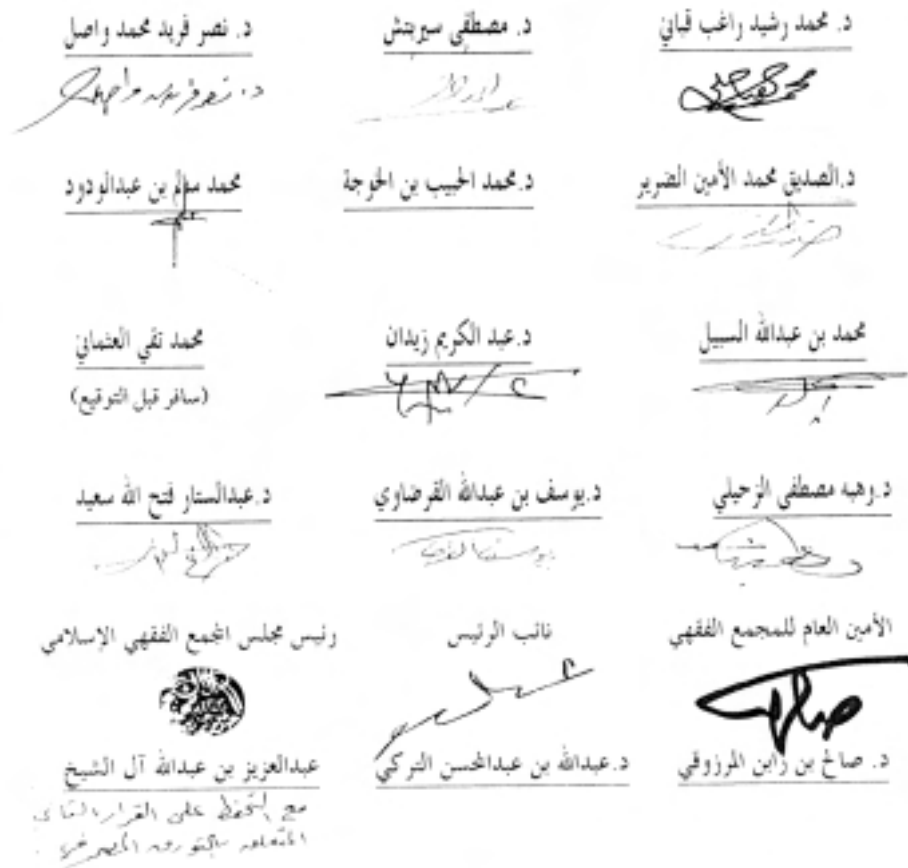 د. محمد رشيد راغب قباني
د. مصطفى سيريتش
د. نصر فريد محمد واصل
د. نصر فريد محمد واصل
د.الصديق محمد الأمين الضرير
د.محمد الحبيب بن الخوجة
محمد سالم بن عبدالودود
محمد بن عبدالله السبيل
د.عبد الكريم زيدان
محمد تقي العثماني
(سافر قبل التوقيع)
د.وهبه مصطفى الزحيلي
د.يوسف بن عبدالله القرضاوي
د.عبدالستار فتح الله سعيد
الأمين العام للمجمع الفقهي
نائب الرئيس
رئيس مجلس المجمع الفقهي الإسلامي
د. صالح بن زابن المرزوقي
د.عبدالله بن عبدالمحسن التركي
عبدالعزيز بن عبدالله آل الشيخ
مع التحفظ على القرار الثاني
المتعلق بالتورق المصرفي